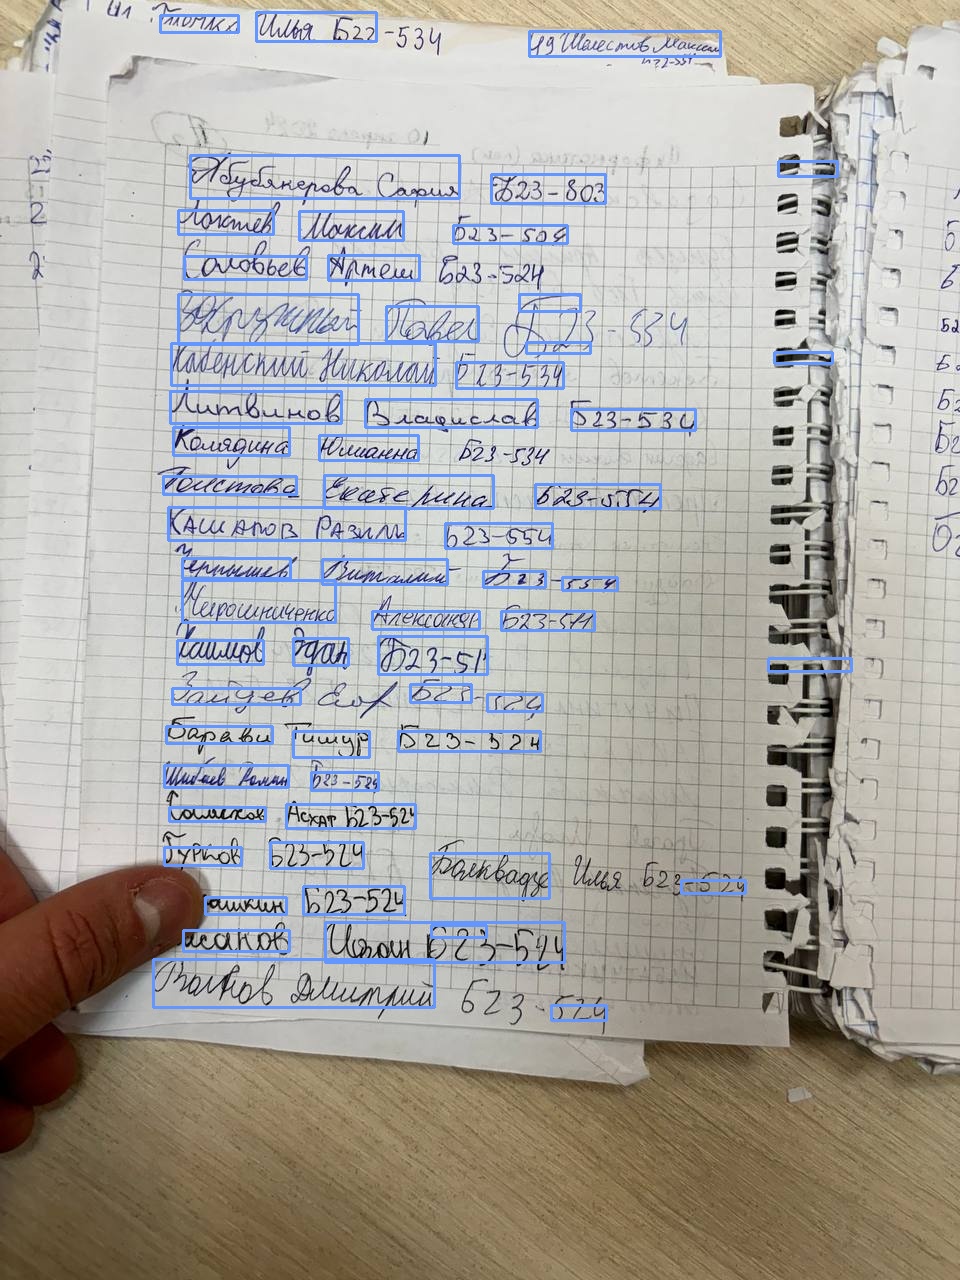 Илья Б22-534
19 Шелестов Максим
Абубякерова София Б23-803
Локтев Максим Б23-504
Соловьев Артем Б23-524
Павел Б23-534
Кобенский Николай Б23-534
Литвинов Владислав Б23-534
Колядина Юлианна Б23-534
Толстова Екатерина Б23-554
Кашапов Разиль Б23-554
Чернышев Виталий Б23-554
Мирошниченко Александр Б23-511
Каимов Эдан Б23-51
Зайцев Егор Б23-524
Тимур Б23-524
Шибаев Роман Б23-524
Асхат Б23-524
Бурков Б23-524
Болквадзе Илья Б23-524
ашкин Б23-524
санов Б23-524
Волков Дмитрий Б23-524